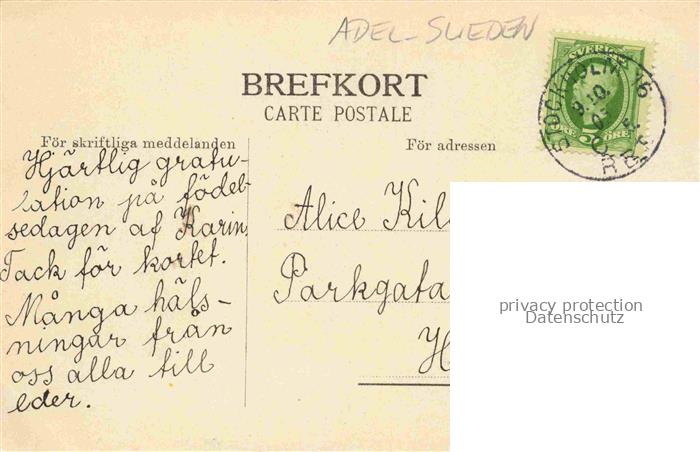 ADEL-SUEDEN
SVERIGE
STOCKHOLM 16
BREFKORT
CARTE POSTALE
För skriftliga meddelanden
För adressen
5 ÖRE
Hjärtlig gratu-
lation på födel-
sedagen af Karin.
Tack för kortet.
Många häls-
ningar från
oss alla till
eder.
Alice Kil
Parkgata
H
privacy protection
Datenschutz